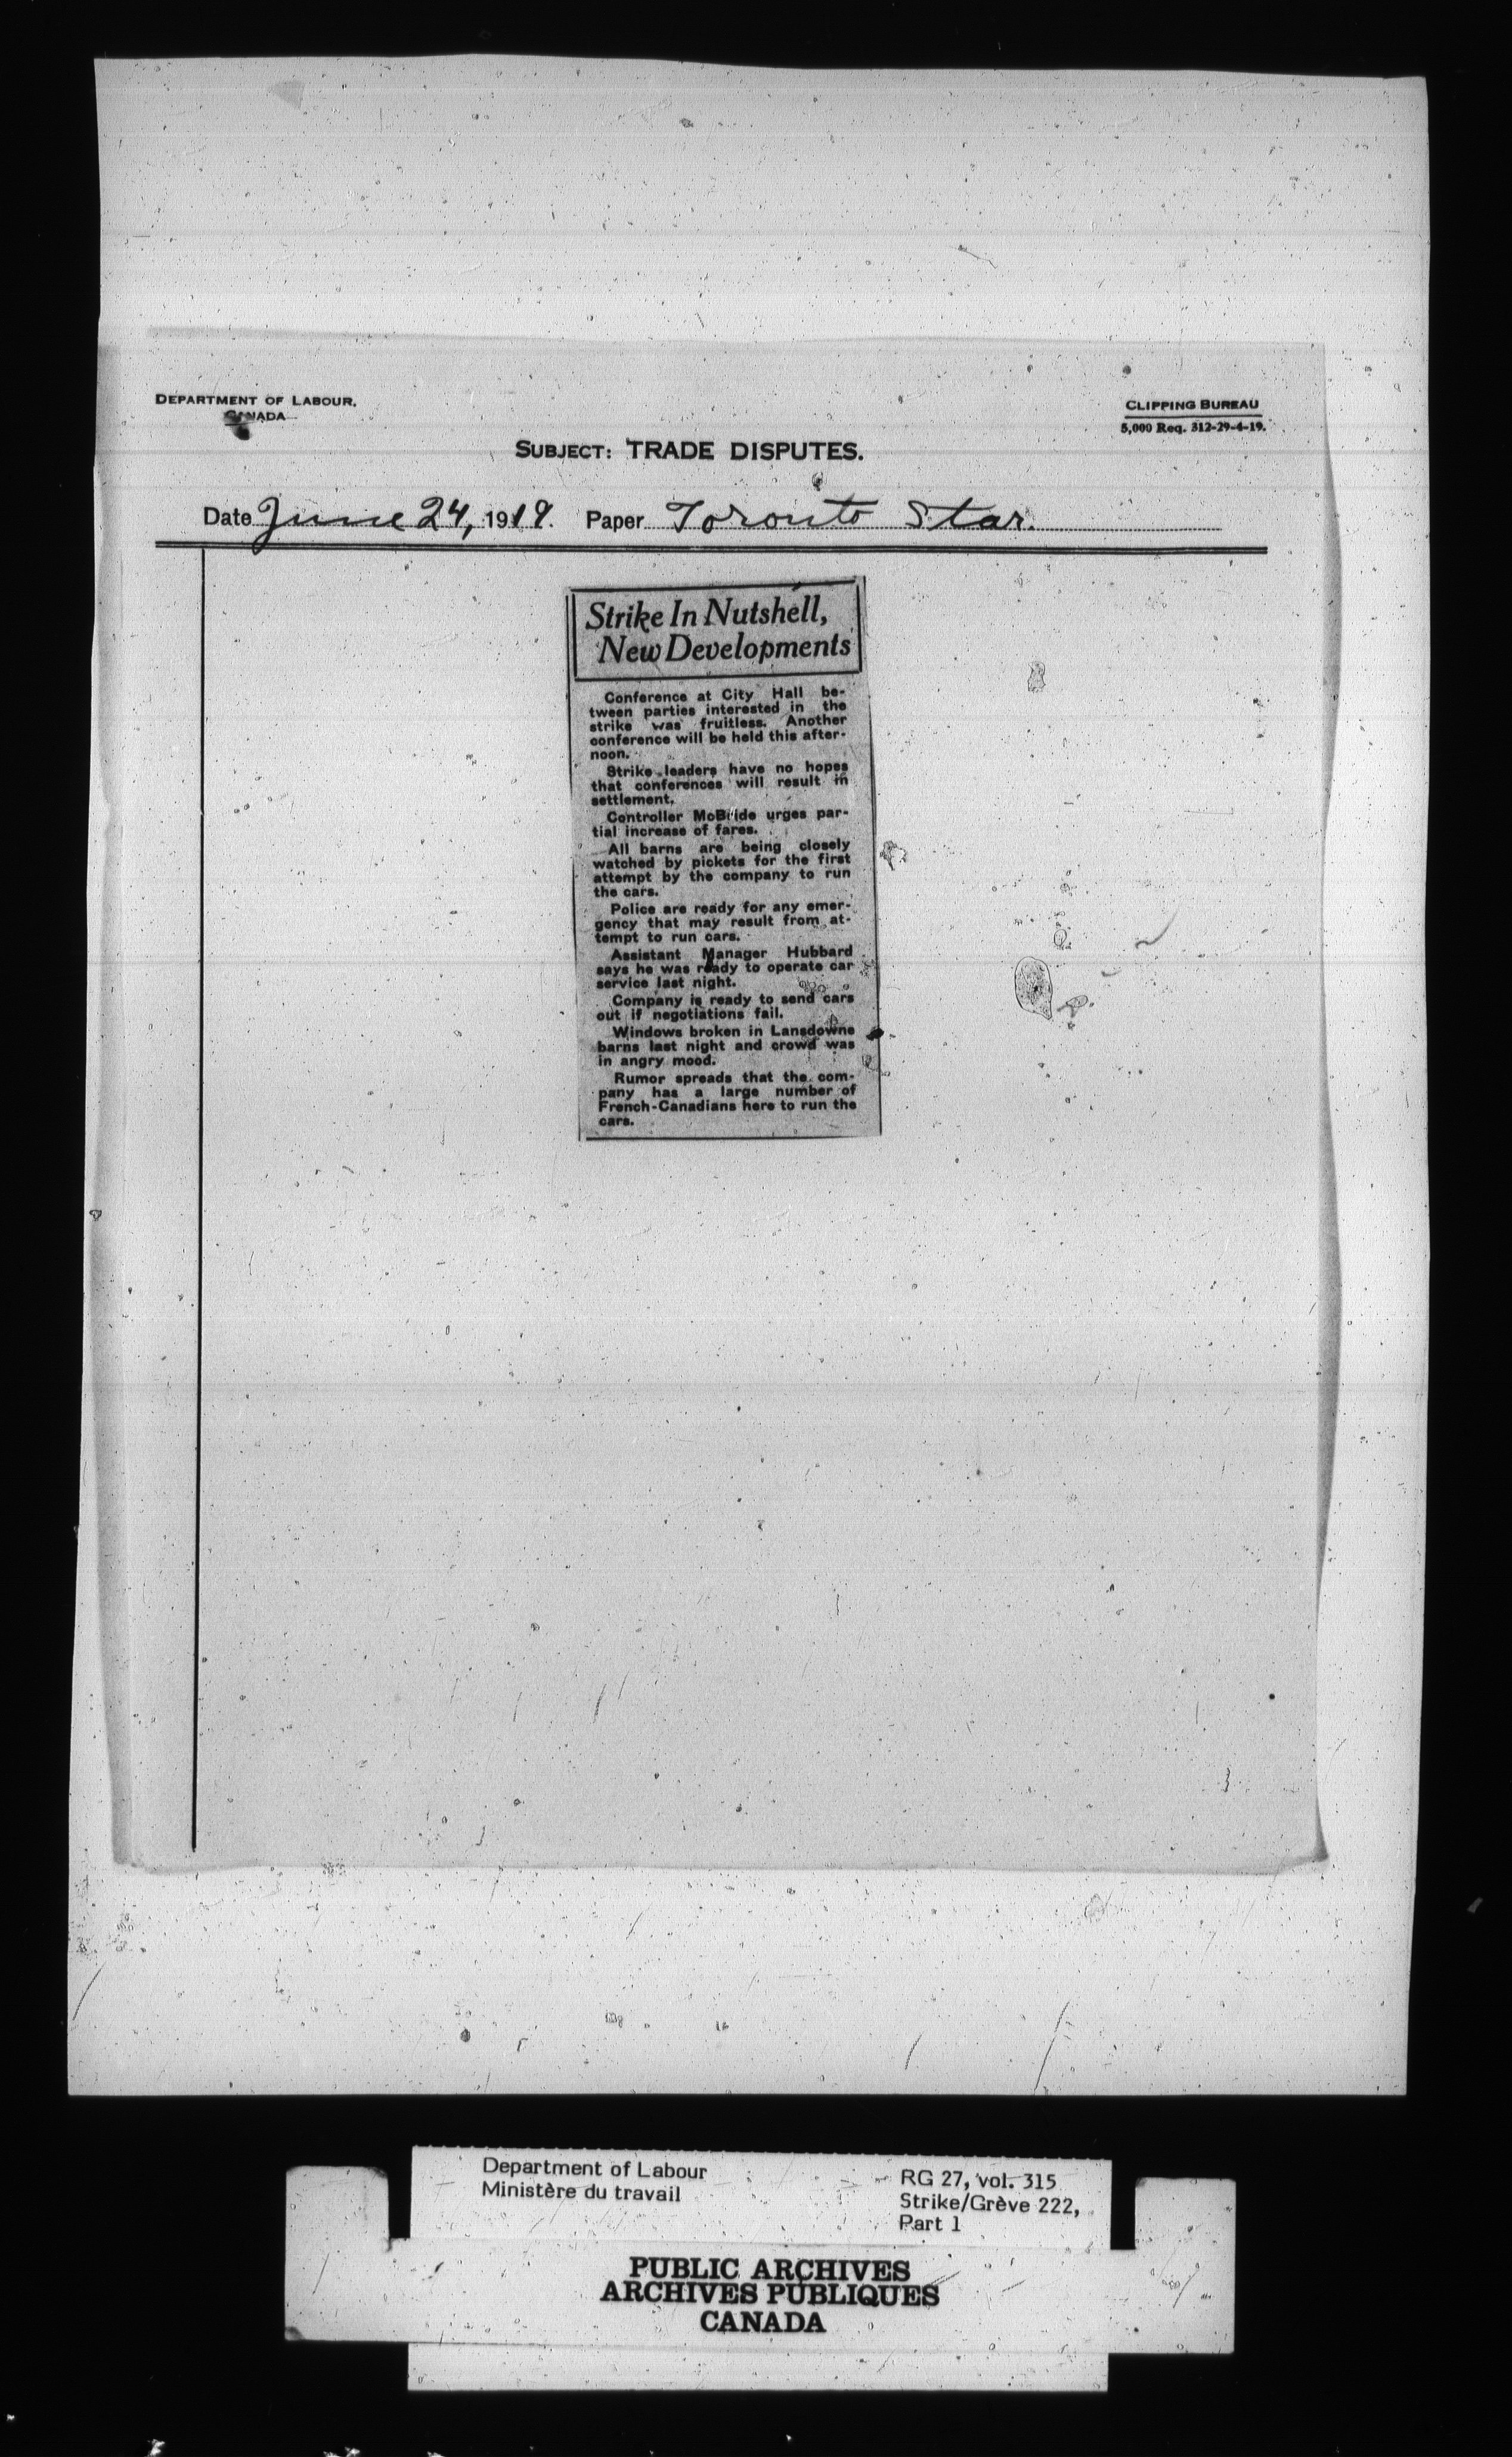 DEPARTMENT OF LABOUR,
CANADA
CLIPPING BUREAU
5,000 Req. 312-29-4-19.
SUBJECT: TRADE DISPUTES.
Date June 24, 1919. Paper Toronto Star.
Strike In Nutshell,
New Developments
Conference at City Hall be-
tween parties interested in the
strike was fruitless. Another
conference will be held this after-
noon.
Strike leaders have no hopes
that conferences will result in
settlement.
Controller McBride urges par-
tial increase of fares.
All barns are being closely
watched by pickets for the first
attempt by the company to run
the cars.
Police are ready for any emer-
gency that may result from at-
tempt to run cars.
Assistant Manager Hubbard
says he was ready to operate car
service last night.
Company is ready to send cars
out if negotiations fail.
Windows broken in Lansdowne
barns last night and crowd was
in angry mood.
Rumor spreads that the com-
pany has a large number of
French-Canadians here to run the
cars.
Department of Labour
Ministère du travail
RG 27, vol. 315
Strike/Grève 222,
Part 1
PUBLIC ARCHIVES
ARCHIVES PUBLIQUES
CANADA